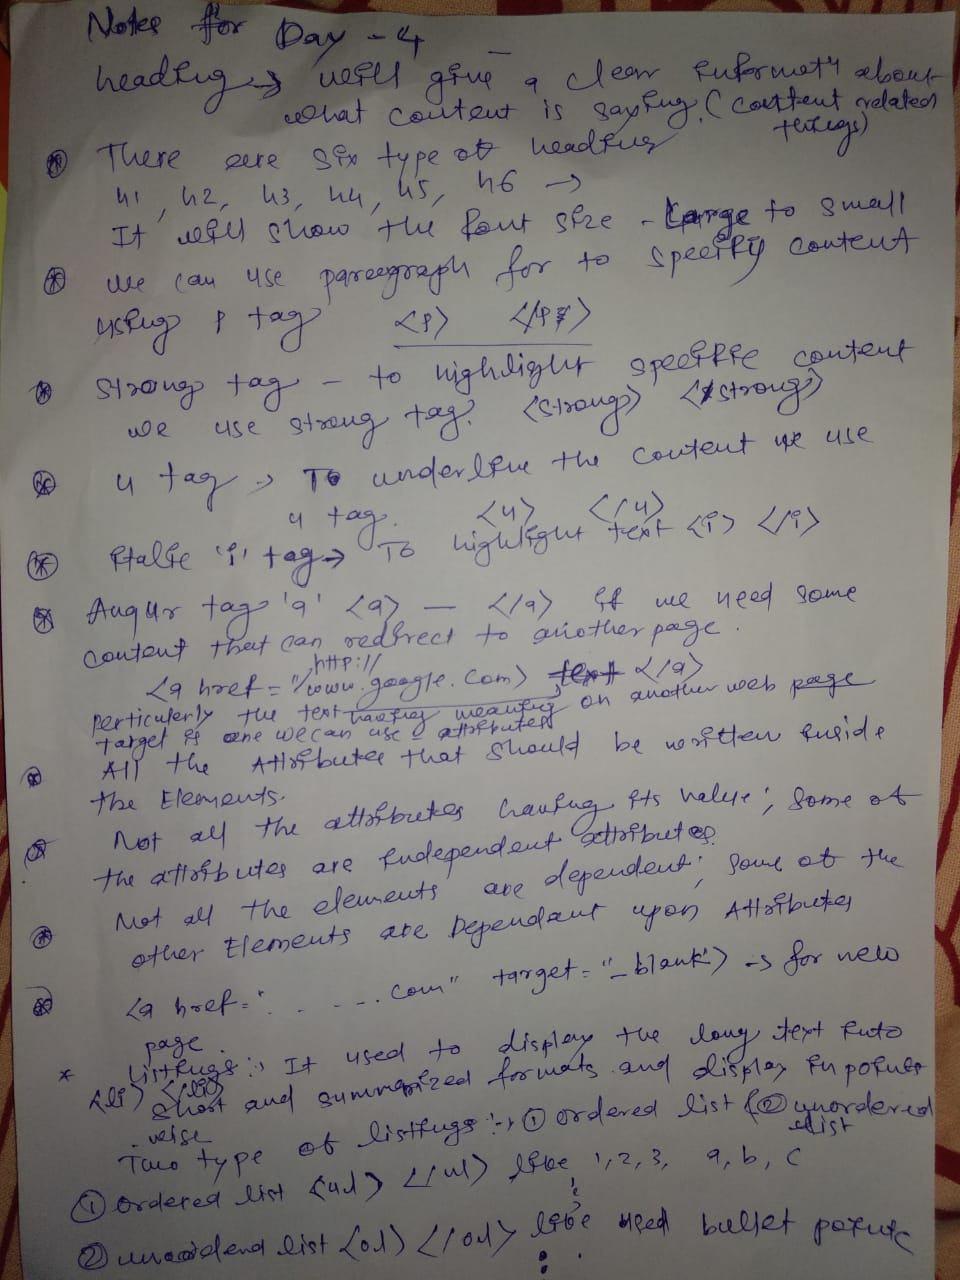 Notes for Day - 4
heading → will give a clear informatn about
what content is saying. (content related
things)
There are six type of heading
h1, h2, h3, h4, h5, h6 →
It will show the font size - Large to small
we can use paragraph for to specify content
using p tag <p> </p>
Strong tag - to highlight specific content
we use strong tag. <strong> </strong>
u tag → To underline the content we use
u tag. <u> </u>
Italic 'i' tag → To highlight text <i> </i>
tag 'a' <a> — </a> if we need some
content that can redirect to another page.
http://
<a href = "/www.google.com> text </a>
perticulerly the text having meaning on another web page
target is one we can use attributes
All the Attributes that should be written inside
the Elements.
Not all the attributes having its value; some of
the attributes are independent attributes.
Not all the elements are dependent; some of the
other Elements are Dependant upon Attributes
<a href=" . . --- .com" target="_blank"> → for new
page.
* Listings :→ It used to display the long text into
<li> </li> short and summarized formats and display in points
wise
Two type of listings :→ ① ordered list & ② unordered
list
① ordered list <ul> </ul> like 1, 2, 3, a, b, c
② list <ol> </ol> like used bullet points